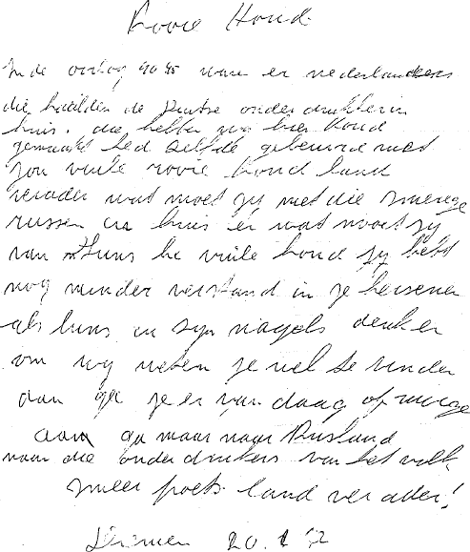 Rooie Hond
In de oorlog 40 45 waren er nederlanders
die haalden de Duitse onderdrukker in
huis. die hebben wy hier Koud
gemaakt het zelfde gebeurd met
jou vuile rooie hond land
verader wat moet gy met die smerege
russen in huis en wat moet jy
van he vuile hond jy hebt
nog minder verstand in je hersenen
als luns in zyn nagels denk er
om wy weten je wel te vinden
aan ga je er van daag of morge
aan ga maar naar Rusland
naar die onderdrukers van het volk
smeer poets land verader!
20. 1 72